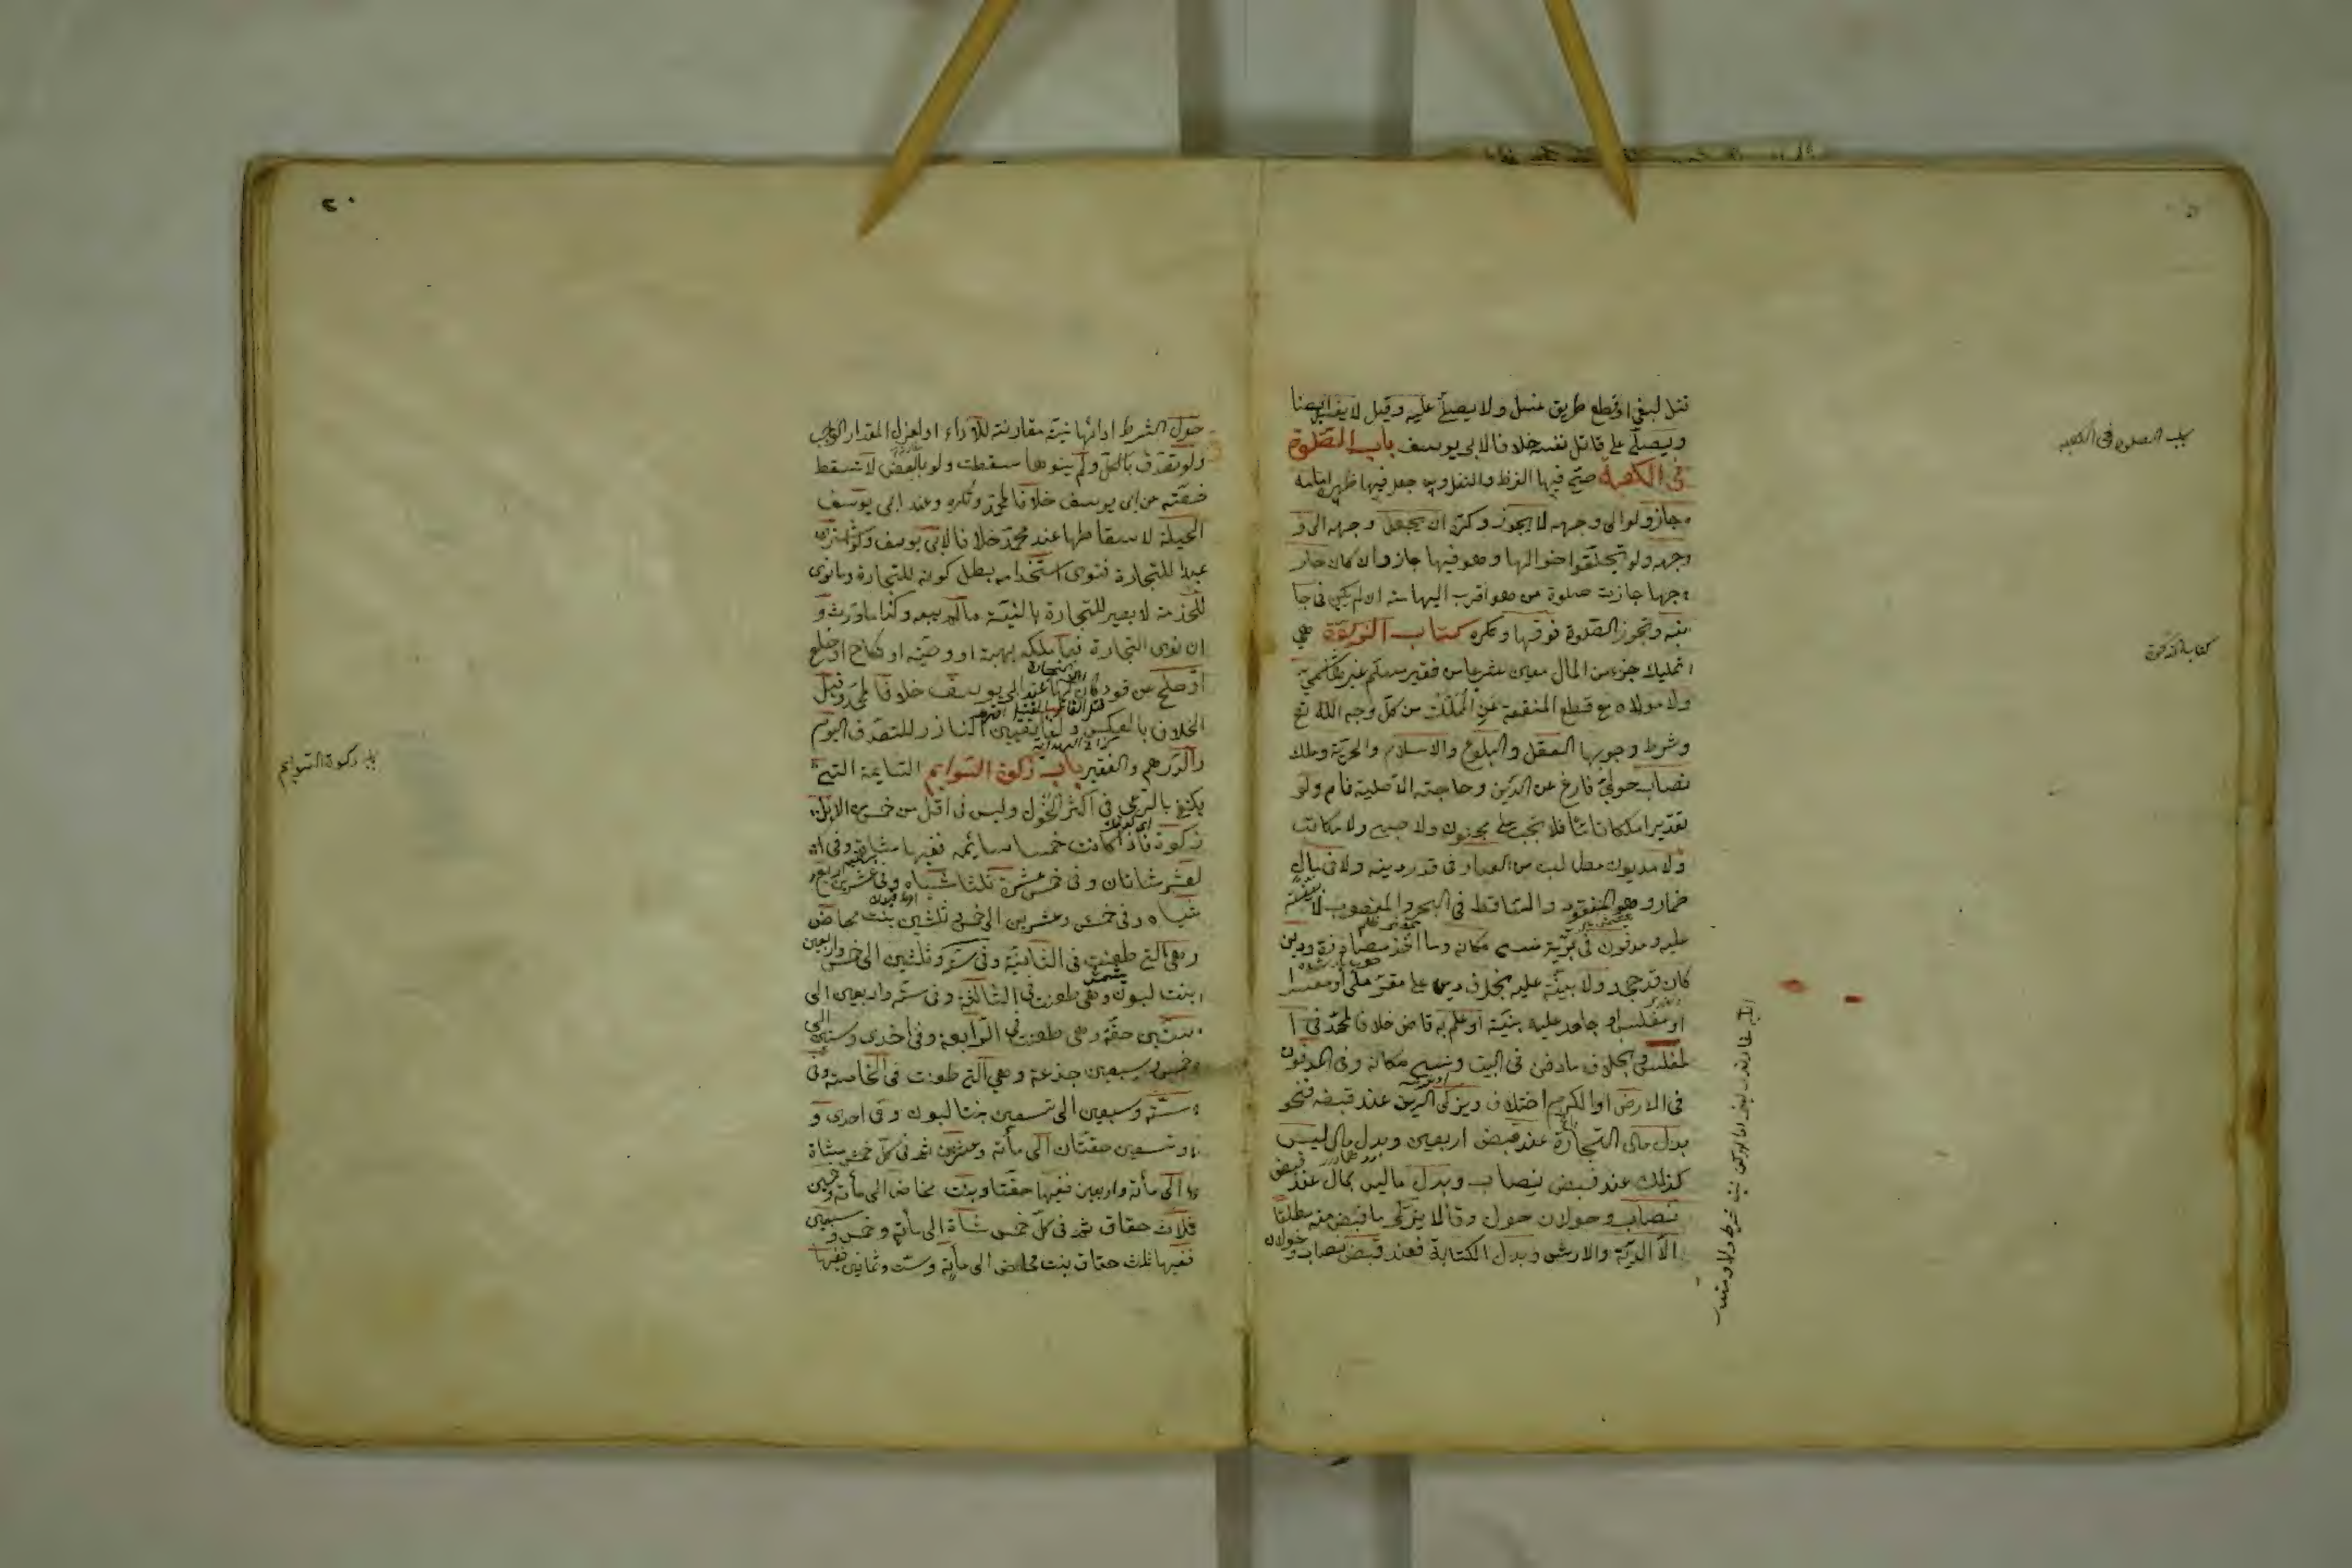 باب الصلوة فى الكعبة
كتاب الزكوة
قتل لبغى او قطع طريق غسل ولا يصلى عليه وقيل لا يغسل ايضا
ويصلى على قاتل نفسه خلافا لابى يوسف باب الصلوة
فى الكعبة صح فيها الفرض والنفل ومن جعل فيها ظهره الى امامه
جاز ولو الى وجهه لا يجوز وكره ان يجعل وجهه الى و
وجهه ولو تحلقوا حوالها وهو فيها جاز وان كان خار
جها جازت صلوة من هو اقرب اليها منه ان لم يكن فى جا
نبه وتجوز الصلوة فوقها وتكره كتاب الزكوة هى
تمليك جزء من المال معين من فقير مسلم غير هاشمى
ولا مولاه مع قطع المنفعة عن المملك من كل وجه الله تع
وشرط وجوبها العقل والبلوغ والاسلام والحرية وملك
نصاب حولى فارغ عن الدين وحاجته الاصلية نام ولو
تقديرا ملكا تاما فلا تجب على مجنون ولا صبى ولا مكاتب
ولا مديون مطالب من العباد فى قدر دينه ولا فى مال
ضمار وهو المفقود والساقط فى البحر والمغصوب لا بينة
عليه ومدفون فى برية نسى مكانه وما اخذ مصادرة ودين
كان قد جحد ولا بينة عليه بخلاف دين على مقر ملى او معسر
او مفلس او جاحد عليه بينة او علم به قاض خلافا لمحمد فى ا
لمفلس وبخلاف ما دفن فى البيت ونسى مكانه وفى المدفون
فى الارض او الكرم اختلاف ويزكى الدين عند قبضه فنحو
بدل مال التجارة عند قبض اربعين وبدل مال ليس
كذلك عند قبض نصاب وبدل ما ليس بمال عند قبض
نصاب وحولان حول وقالا يزكى ما قبض منه مطلقا
الا الدية والارش وبدل الكتابة فعند قبض نصاب وحولان
٢٠
باب زكوة السوايم
حول الشرط ادائها نية مقارنة للاداء او لعزل المقدار الواجب
ولو تصدق بالكل ولم ينوها سقطت ولو بالبعض لا تسقط
حصته عن ابى يوسف خلافا لمحمد وتكره وعند ابى يوسف
الحيلة لاسقاطها عند محمد خلافا لابى يوسف ولو اشترى
عبدا للتجارة فنوى استخدامه بطل كونه للتجارة وما نوى
للخدمة لا يصير للتجارة بالنية مالم يبعه وكذا ما ورث و
ان نوى التجارة فيما ملكه بهبة او وصية او نكاح او خلع
او صلح عن قود كان لها عند ابى يوسف خلافا لمحمد وقيل
الخلاف بالعكس ولغا تعيين الناذر للتصدق اليوم
والدرهم والفقير باب زكوة السوايم السايمة التى
يكتفى بالرعى فى اكثر الحول وليس فى اقل من خمس الابل
زكوة فاذا كانت خمسا سائمة ففيها شاة وفى ا
لعشر شاتان وفى خمس عشرة ثلثا شياه وفى عشرين اربع
شياه وفى خمس وعشرين الى خمس ثلثين بنت مخاض
وهى التى طعنت فى الثانية وفى ست وثلثين الى خمس واربعين
بنت لبون وهى طعنت فى الثالثة وفى ستة واربعين الى
ستين حقة وهى طعنت فى الرابعة وفى احدى وستين الى
وخمس وسبعين جذعة وهى التى طعنت فى الخامسة وفى
ستة وسبعين الى تسعين بنتا لبون وفى احدى و
وتسعين حقتان الى مأئة وعشرين ثم فى كل خمس شاة
الى مأئة واربعين ففيها حقتا وبنت مخاض الى مأئة وخمسين
فلاث حقاق ثم فى كل خمس شاة الى مأئة وخمس وسبعين
ففيها ثلث حقاق بنت مخاض الى مأئة وست وثمانين ففيها